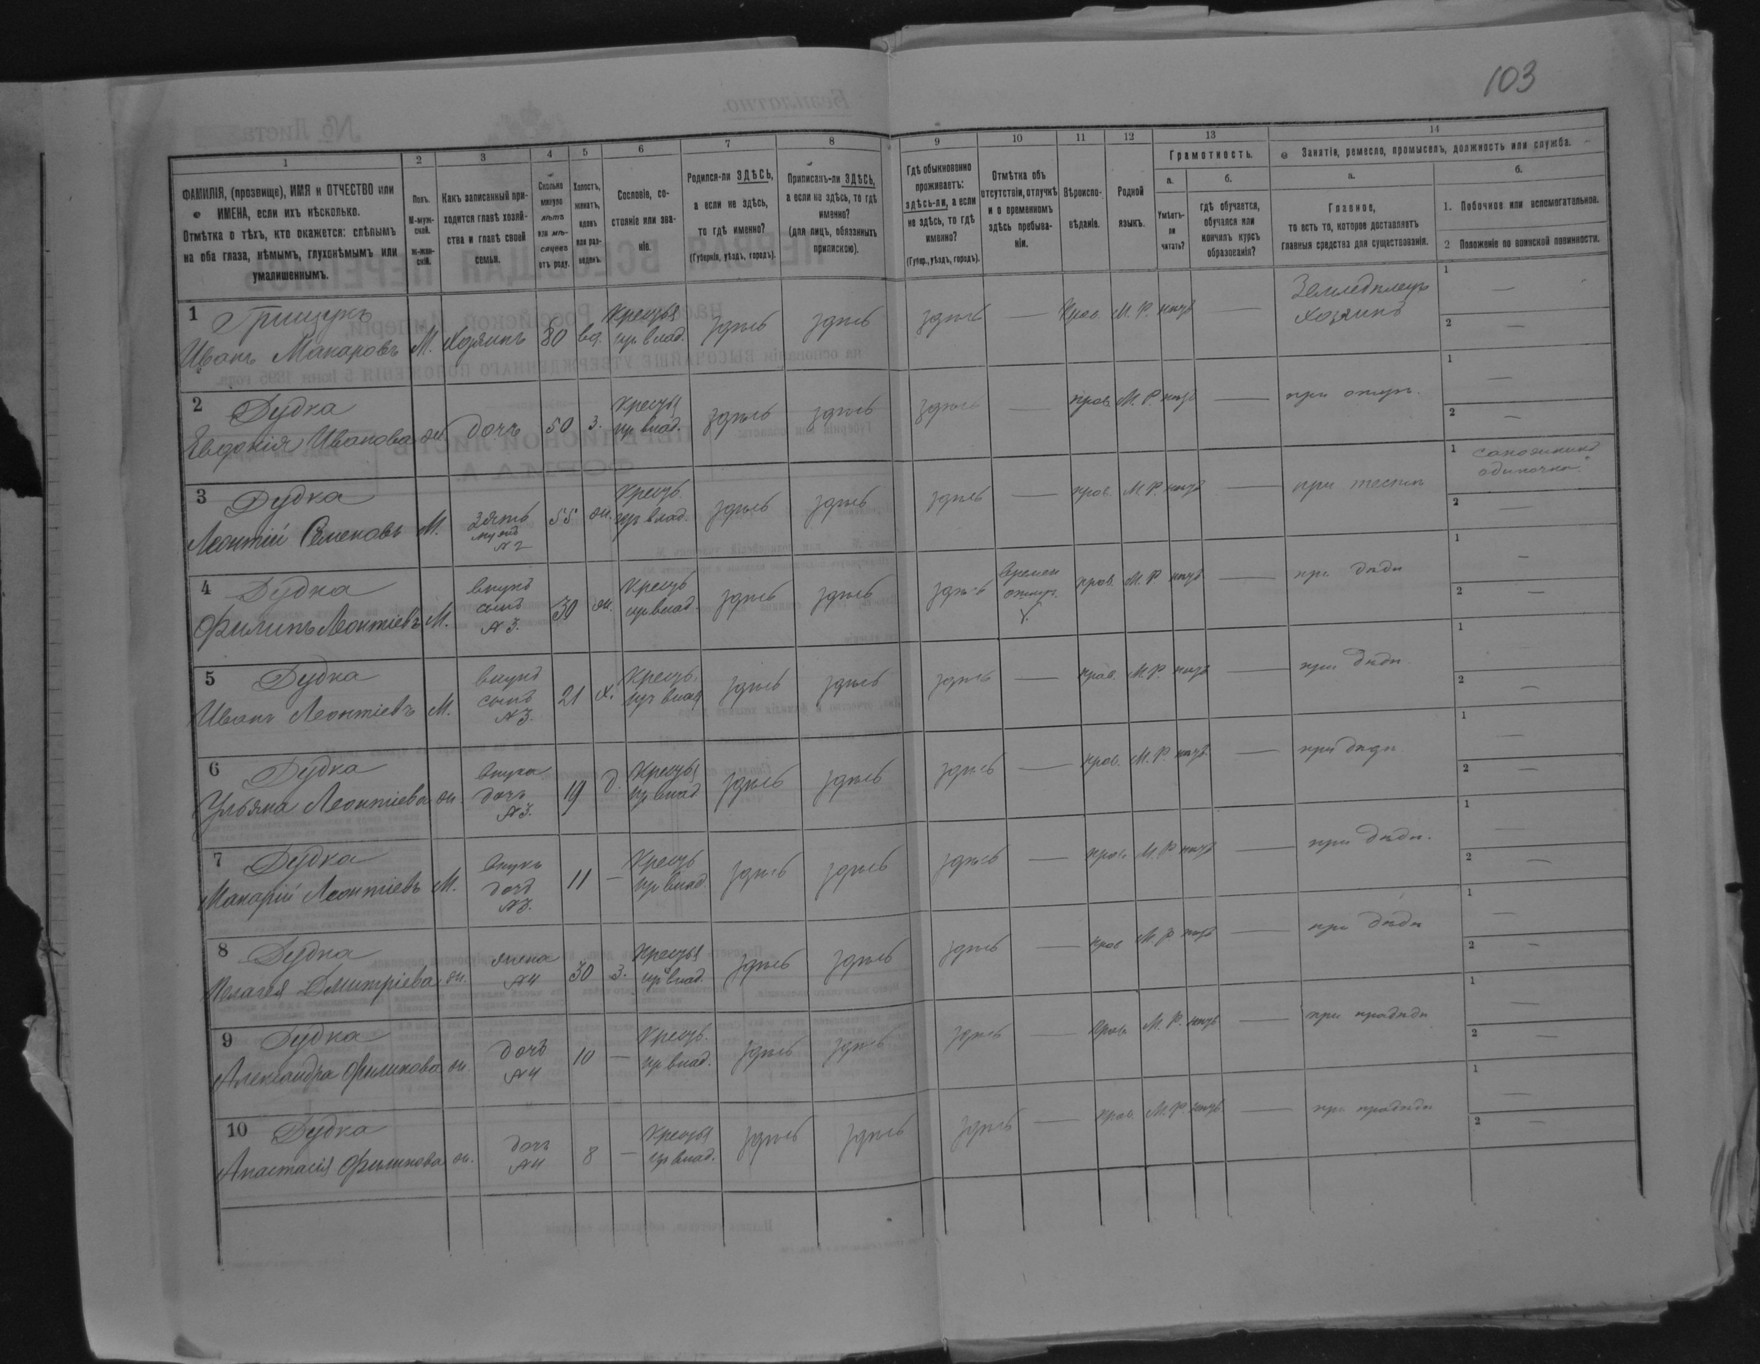 103
1 2 3 4 5 6 7 8 9 10 11 12 13 14
ФАМИЛІЯ, (прозвище), ИМЯ и ОТЧЕСТВО или ИМЕНА, если ихъ нѣсколько.
Отмѣтка о тѣхъ, кто окажется: слѣпымъ на оба глаза, нѣмымъ, глухонѣмымъ или умалишеннымъ.
Полъ.
М-мужской.
Ж-женскій.
Какъ записанный приходится главѣ хозяйства и главѣ своей семьи.
Сколько минуло лѣтъ или мѣсяцевъ отъ роду.
Холостъ, женатъ, вдовъ или разведенъ.
Сословіе, состояніе или званіе.
Родился-ли ЗДѢСЬ, а если не здѣсь, то гдѣ именно?
(Губернія, уѣздъ, городъ).
Приписанъ-ли ЗДѢСЬ, а если не здѣсь, то гдѣ именно?
(для лицъ, обязанныхъ припискою).
Гдѣ обыкновенно проживаетъ: здѣсь-ли, а если не здѣсь, то гдѣ именно?
(Губер., уѣздъ, городъ).
Отмѣтка объ отсутствіи, отлучкѣ и о временномъ здѣсь пребываніи.
Вѣроисповѣданіе.
Родной языкъ.
Грамотность.
а. Умѣетъ-ли читать?
б. гдѣ обучается, обучался или кончилъ курсъ образованія?
Занятіе, ремесло, промыселъ, должность или служба.
а. Главное, то есть то, которое доставляетъ главныя средства для существованія.
б.
1. Побочное или вспомогательное.
2 Положеніе по воинской повинности.
1 Грищукъ Крестья Земледѣлецъ 1 —
Иванъ Макаровъ М. Хозяинъ 80 вд. изъ влад. здѣсь здѣсь здѣсь — Прав. М. Р. нѣтъ — хозяинъ 2 —
2 Дудка Крестья 1 —
Евдокія Иванова ж. дочь 50 з. изъ влад. здѣсь здѣсь здѣсь — прав. М. Р. нѣтъ — при отцѣ. 2 —
3 Дудка Крестъ. 1 сапожникъ одиночка
Леонтій Семеновъ М. зять мужъ N 2 55 ж. изъ влад. здѣсь здѣсь здѣсь — прав. М. Р. нѣтъ — при тестѣ 2 —
4 Дудка внукъ Крестъ времен 1 —
Филипъ Леонтіевъ М. сынъ N 3. 30 ж. изъ влад. здѣсь здѣсь здѣсь прав. М. Р. нѣтъ — при дѣди 2 —
5 Дудка внукъ Крестъ. 1 —
Иванъ Леонтіевъ М. сынъ N 3. 21 х. изъ влад здѣсь здѣсь здѣсь — прав. М. Р. нѣтъ — при дѣди. 2 —
6 Дудка внука Крестья 1 —
Ульяна Леонтіева ж. дочь N 3. 19 д. изъ влад здѣсь здѣсь здѣсь — прав. М. Р. нѣтъ — при дѣди 2 —
7 Дудка внукъ Крестъ 1 —
Макарій Леонтіевъ М. N 3. 11 — изъ влад. здѣсь здѣсь здѣсь — прав. М. Р. нѣтъ — при дѣди. 2 —
8 Дудка жена Крестья 1 —
Пелагея Дмитріева ж. N 4 30 з. изъ влад. здѣсь здѣсь здѣсь — прав М. Р. нѣтъ — при дѣди 2 —
9 Дудка дочь Крестъ. 1 —
Александра Филипова ж. N 4 10 — изъ влад. здѣсь здѣсь здѣсь — прав. М. Р. нѣтъ — при прадѣди 2 —
10 Дудка дочь Крестья 1 —
Анастасія Филипова ж. N 4 8 — изъ влад. здѣсь здѣсь здѣсь — прав. М. Р. нѣтъ — при прадѣди 2 —